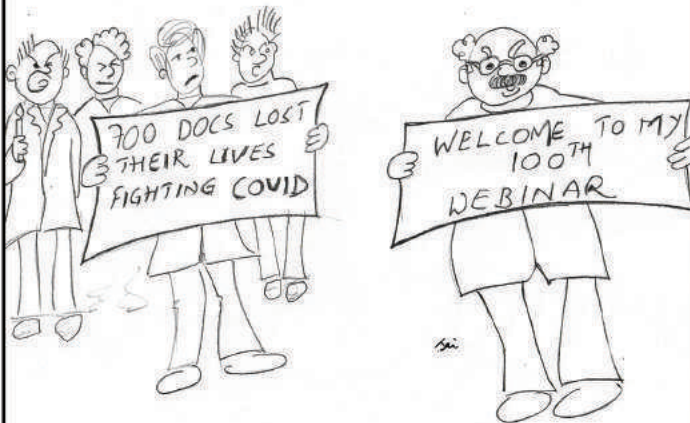 700 DOCS LOST
THEIR LIVES
FIGHTING COVID
WELCOME TO MY
100TH
WEBINAR